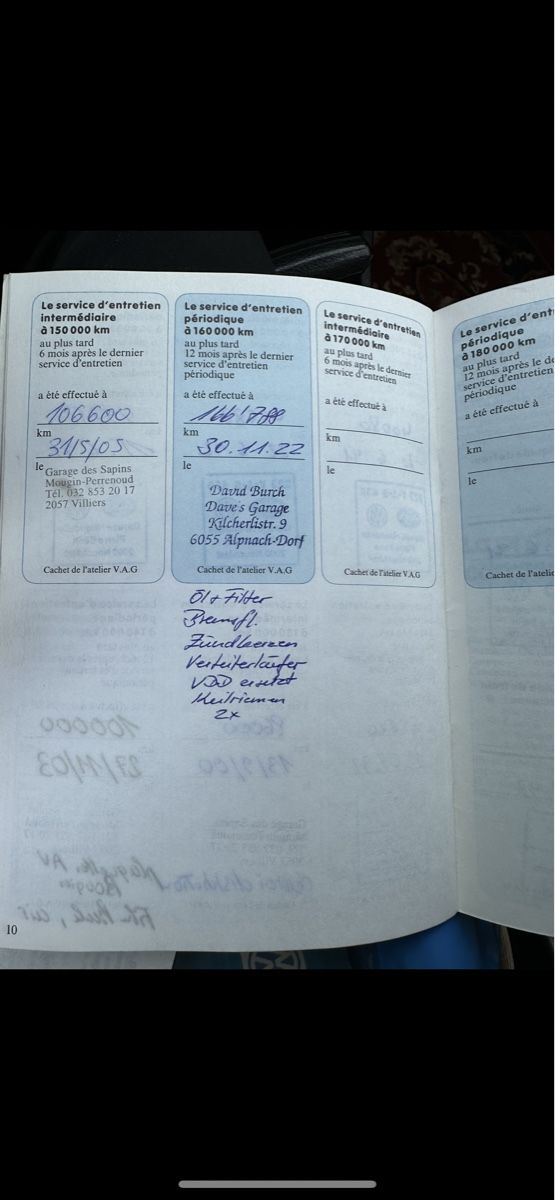 Le service d'entretien
intermédiaire
à 150 000 km
au plus tard
6 mois après le dernier
service d'entretien
a été effectué à
106600
km
31/5/05
le
Garage des Sapins
Mougin-Perrenoud
Tél. 032 853 20 17
2057 Villiers
Cachet de l'atelier V.A.G
Le service d'entretien
périodique
à 160 000 km
au plus tard
12 mois après le dernier
service d'entretien
périodique
a été effectué à
166'788
km
30.11.22
le
David Burch
Dave's Garage
Kilcherlistr. 9
6055 Alpnach-Dorf
Cachet de l'atelier V.A.G
Öl + Filter
Bremsfl.
Zündkerzen
Verteilerläufer
VDD ersetzt
Keilriemen
2x
Le service d'entretien
intermédiaire
à 170 000 km
au plus tard
6 mois après le dernier
service d'entretien
a été effectué à
km
le
Cachet de l'atelier V.A.G
Le service d'ent
périodique
à 180 000 km
au plus tard
12 mois après le d
service d'entretien
périodique
a été effectué à
km
le
Cachet de l'atelie
10